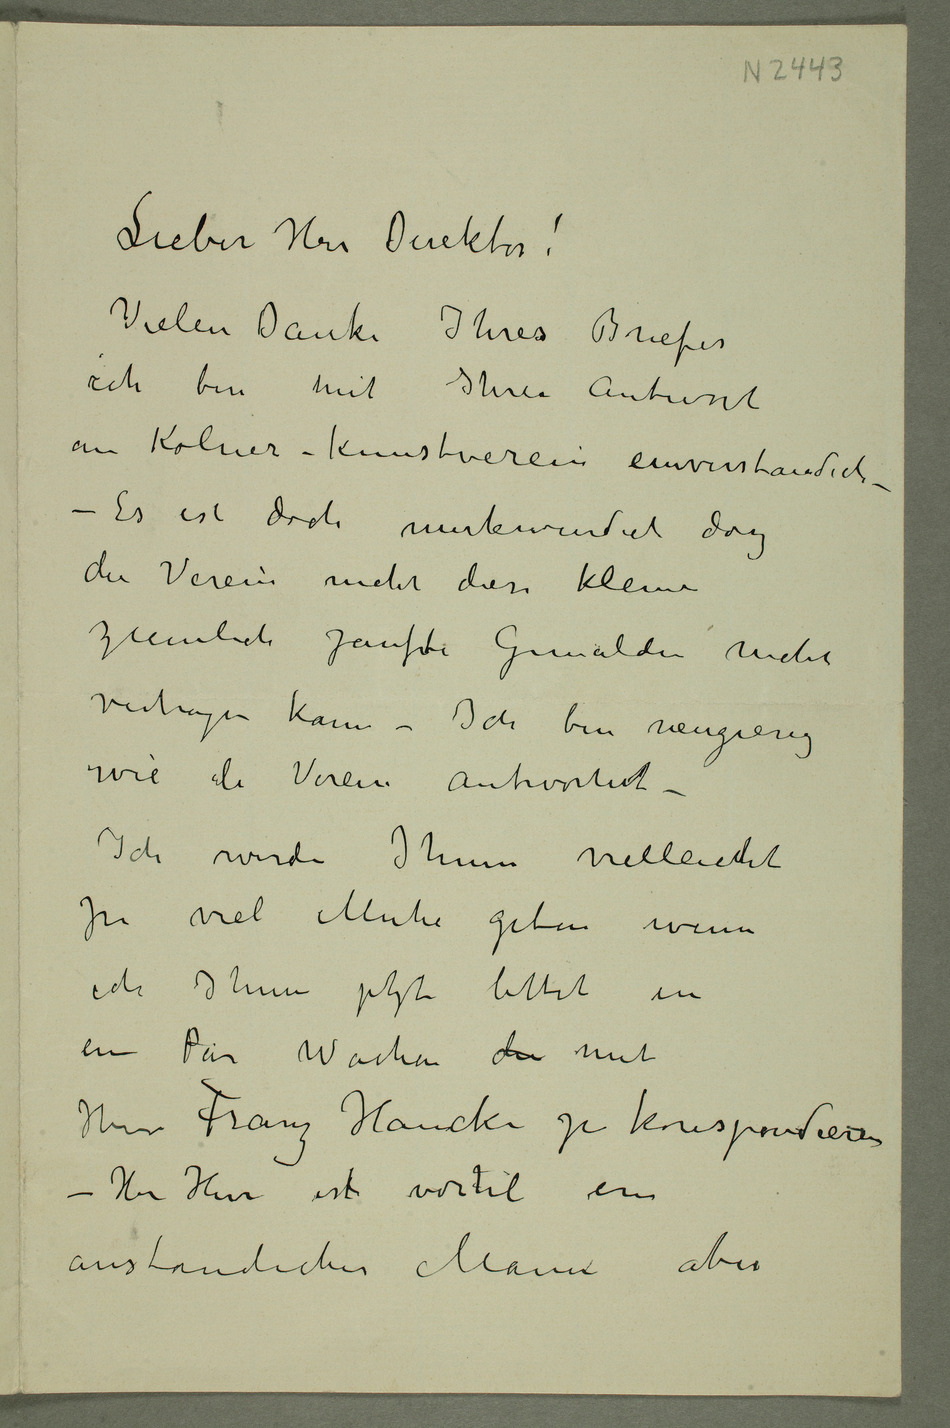 N 2443
Lieber Herr Direktor!
Vielen Danke Ihres Briefes
ich bin mit Ihrer Antwort
an Kolner-Kunstverein einverstandich –
– Es ist doch merkwurdich dasz
die Verein nicht diese kleine
ziemlich zanfte Gemälden nicht
vertragen kann – Ich bin neugierig
wie de Verein antwortet –
Ich werde Ihnen vielleicht
zu viel Muhe geben wenn
ich Ihnen jetzt bittet in
ein Par Wochen die mit
Herrn Franz Hancke zu korrespondieren
– Herr ist ein
anstandicher Mann aber